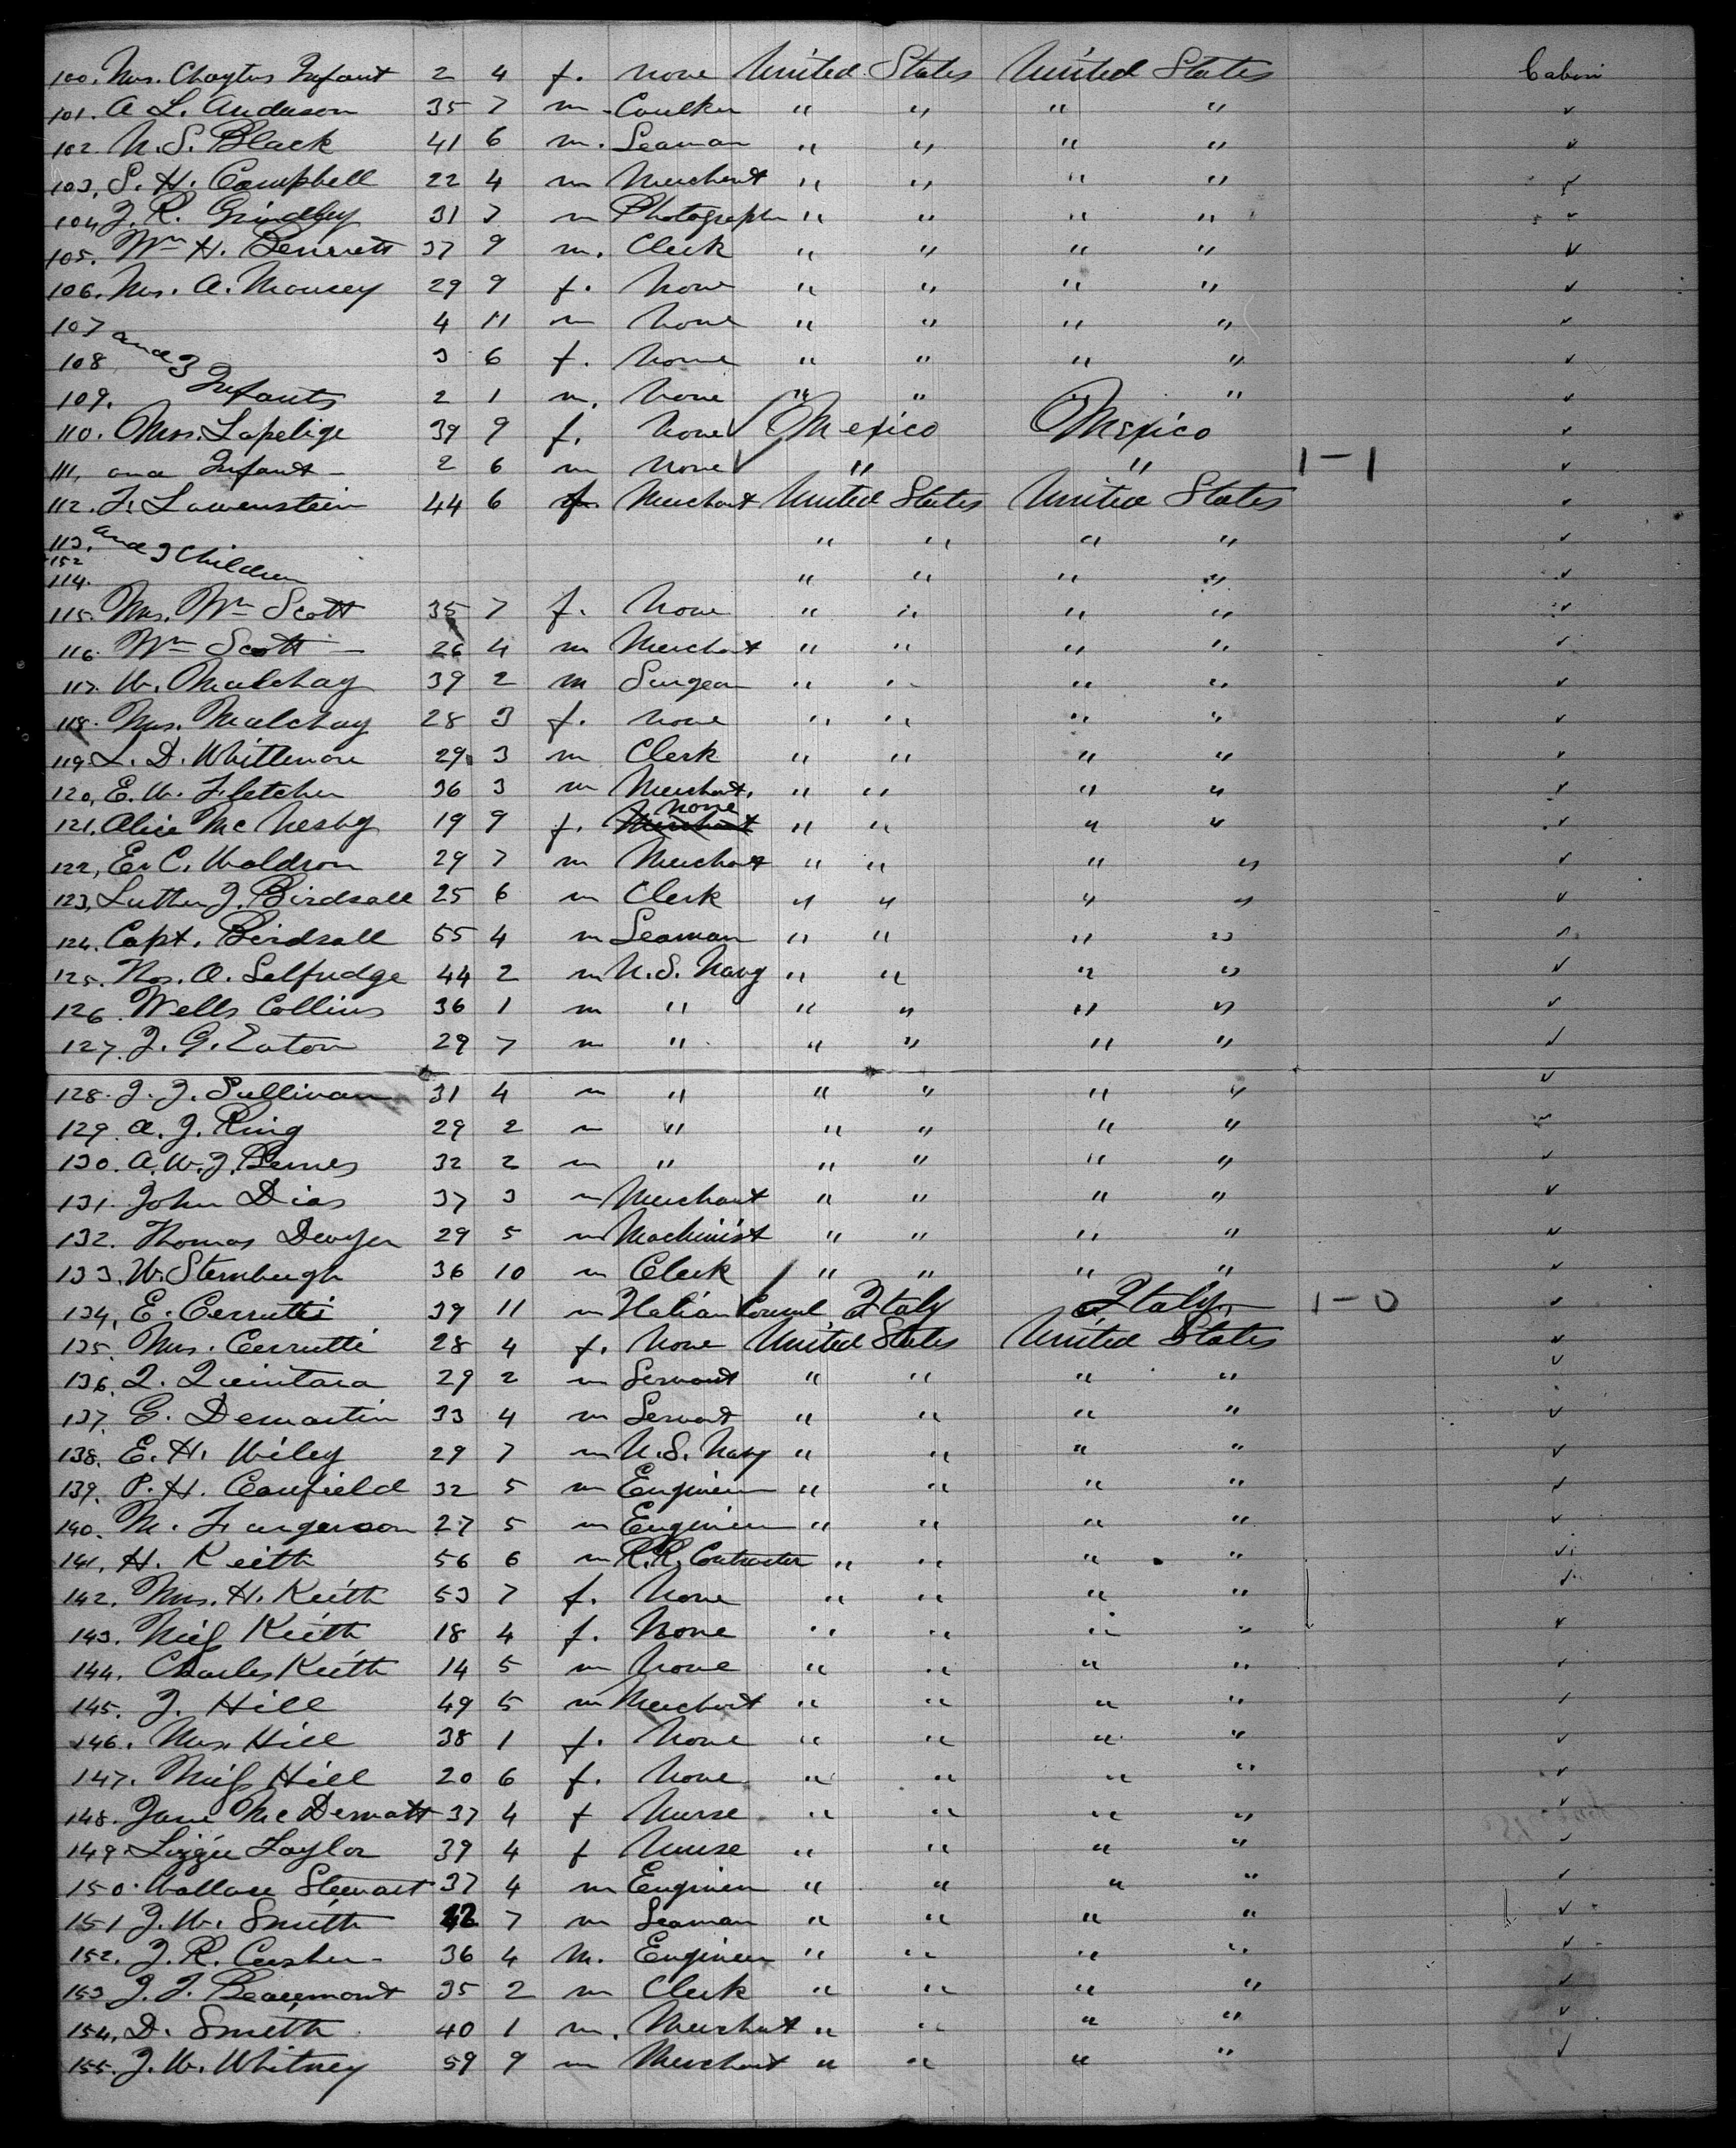 100. Mrs. Chaytus Infant 2 4 f. None United States United States Cabin
101. A L. Anderson 35 7 m Caulker " " " " ✓
102. N. S. Black 41 6 m. Seaman " " " " ✓
103. S. H. Campbell 22 4 m Merchant " " " " ✓
104 J. R. Grindley 31 7 m Photograph " " " " ✓
105. Wm H. Bennett 37 9 m. Clerk " " " " ✓
106. Mrs. A. Moucey 29 9 f. None " " " " ✓
107 4 11 m None " " " " ✓
108 and 3 3 6 f. None " " " " ✓
109. Infants 2 1 m. None " " " " ✓
110. Mrs. Lapelige 39 9 f. None ✓ Mexico Mexico ✓
111, and Infant - 2 6 m None ✓ " " 1-1 ✓
112. F. Lowenstein 44 6 f. Merchant United States United States ✓
113. and 3 Children " " " " ✓
152
114. " " " " ✓
115. Mrs. Wm Scott 35 7 f. None " " " " ✓
116. Wm Scott - 26 4 m Merchant " " " " ✓
117. W. Malchay 39 2 m Surgeon " " " " ✓
118. Mrs. Malchay 28 3 f. None " " " " ✓
119. L. D. Whittemore 29 3 m Clerk " " " " ✓
120, E. W. Fletcher 36 3 m Merchant. " " " " ✓
121. Alice Mc Nesby 19 9 f. Merchant None " " " " ✓
122, E. C. Waldron 29 7 m Merchant " " " " ✓
123, Luther J. Birdsall 25 6 m Clerk " " " " ✓
124. Capt. Birdsall 55 4 m Seaman " " " " ✓
125. Thos. O. Selfridge 44 2 m U.S. Navy " " " " ✓
126. Wells Collins 36 1 m " " " " " ✓
127. J. G. Eaton 29 7 m " " " " " ✓
128. J. J. Sullivan 31 4 m " " " " " ✓
129. A. J. King 29 2 m " " " " " ✓
130. A. W. J. Barnes 32 2 m " " " " " ✓
131. John Dias 37 3 m Merchant " " " " ✓
132. Thomas Dwyer 29 5 m Machinist " " " " ✓
133. W. Sternbergh 36 10 m Clerk " " " " ✓
134, E. Cerrutti 39 11 m Italian Consul Italy Italy 1-0 ✓
135. Mrs. Cerrutti 28 4 f. None United States United States ✓
136. Q. Quintara 29 2 m Servant " " " " ✓
137. E. Demartin 33 4 m Servant " " " " ✓
138. E. H. Wiley 29 7 m U.S. Navy " " " " ✓
139. P. H. Canfield 32 5 m Engineer " " " " ✓
140. M. Fargerson 27 5 m Engineer " " " " ✓
141, H. Keith 56 6 m R.R. Contracter " " " " ✓
142. Mrs. H. Keith 53 7 f. None " " " " ✓
143. Miss Keith 18 4 f. None " " " " ✓
144. Charles Keith 14 5 m None " " " " ✓
145. J. Hill 49 5 m Merchant " " " " ✓
146. Mrs. Hill 38 1 f. None " " " " ✓
147. Miss Hill 20 6 f. None " " " " ✓
148. Jane Mc Dermatt 37 4 f Nurse " " " " ✓
149. Lizzie Taylor 39 4 f Nurse " " " " ✓
150. Wallace Stewart 37 4 m Engineer " " " " ✓
151 J. W. Smith 42 7 m Seaman " " " " ✓
152. J. R. Cusher - 36 4 M. Engineer " " " " ✓
153 J. J. Beaumont 35 2 m Clerk " " " " ✓
154. D. Smith 40 1 m. Merchant " " " " ✓
155. J. W. Whitney 59 9 m Merchant " " " " ✓